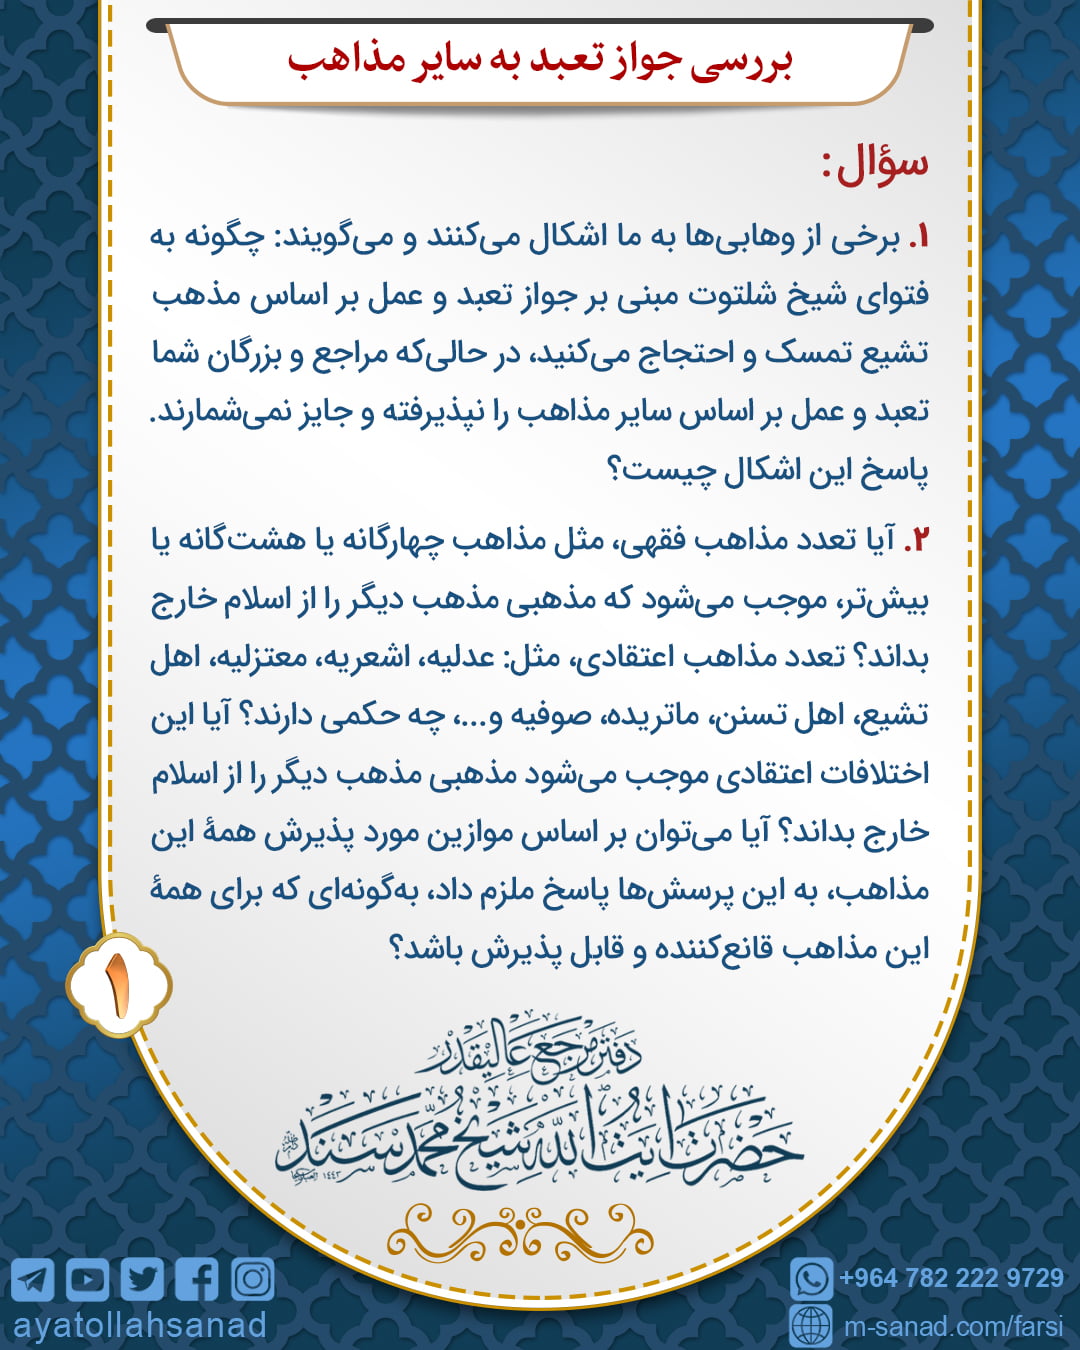 بررسی جواز تعبد به سایر مذاهب
سؤال:
۱. برخی از وهابی‌ها به ما اشکال می‌کنند و می‌گویند: چگونه به
فتوای شیخ شلتوت مبنی بر جواز تعبد و عمل بر اساس مذهب
تشیع تمسک و احتجاج می‌کنید، در حالی‌که مراجع و بزرگان شما
تعبد و عمل بر اساس سایر مذاهب را نپذیرفته و جایز نمی‌شمارند.
پاسخ این اشکال چیست؟
۲. آیا تعدد مذاهب فقهی، مثل مذاهب چهارگانه یا هشت‌گانه یا
بیش‌تر، موجب می‌شود که مذهبی مذهب دیگر را از اسلام خارج
بداند؟ تعدد مذاهب اعتقادی، مثل: عدلیه، اشعریه، معتزلیه، اهل
تشیع، اهل تسنن، ماتریده، صوفیه و...، چه حکمی دارند؟ آیا این
اختلافات اعتقادی موجب می‌شود مذهبی مذهب دیگر را از اسلام
خارج بداند؟ آیا می‌توان بر اساس موازین مورد پذیرش همهٔ این
مذاهب، به این پرسش‌ها پاسخ ملزم داد، به‌گونه‌ای که برای همهٔ
این مذاهب قانع‌کننده و قابل پذیرش باشد؟
۱
دفتر مرجع عالیقدر
حضرت آیت الله شیخ محمد سند
۱۴۴۳
+964 782 222 9729
ayatollahsanad
m-sanad.com/farsi